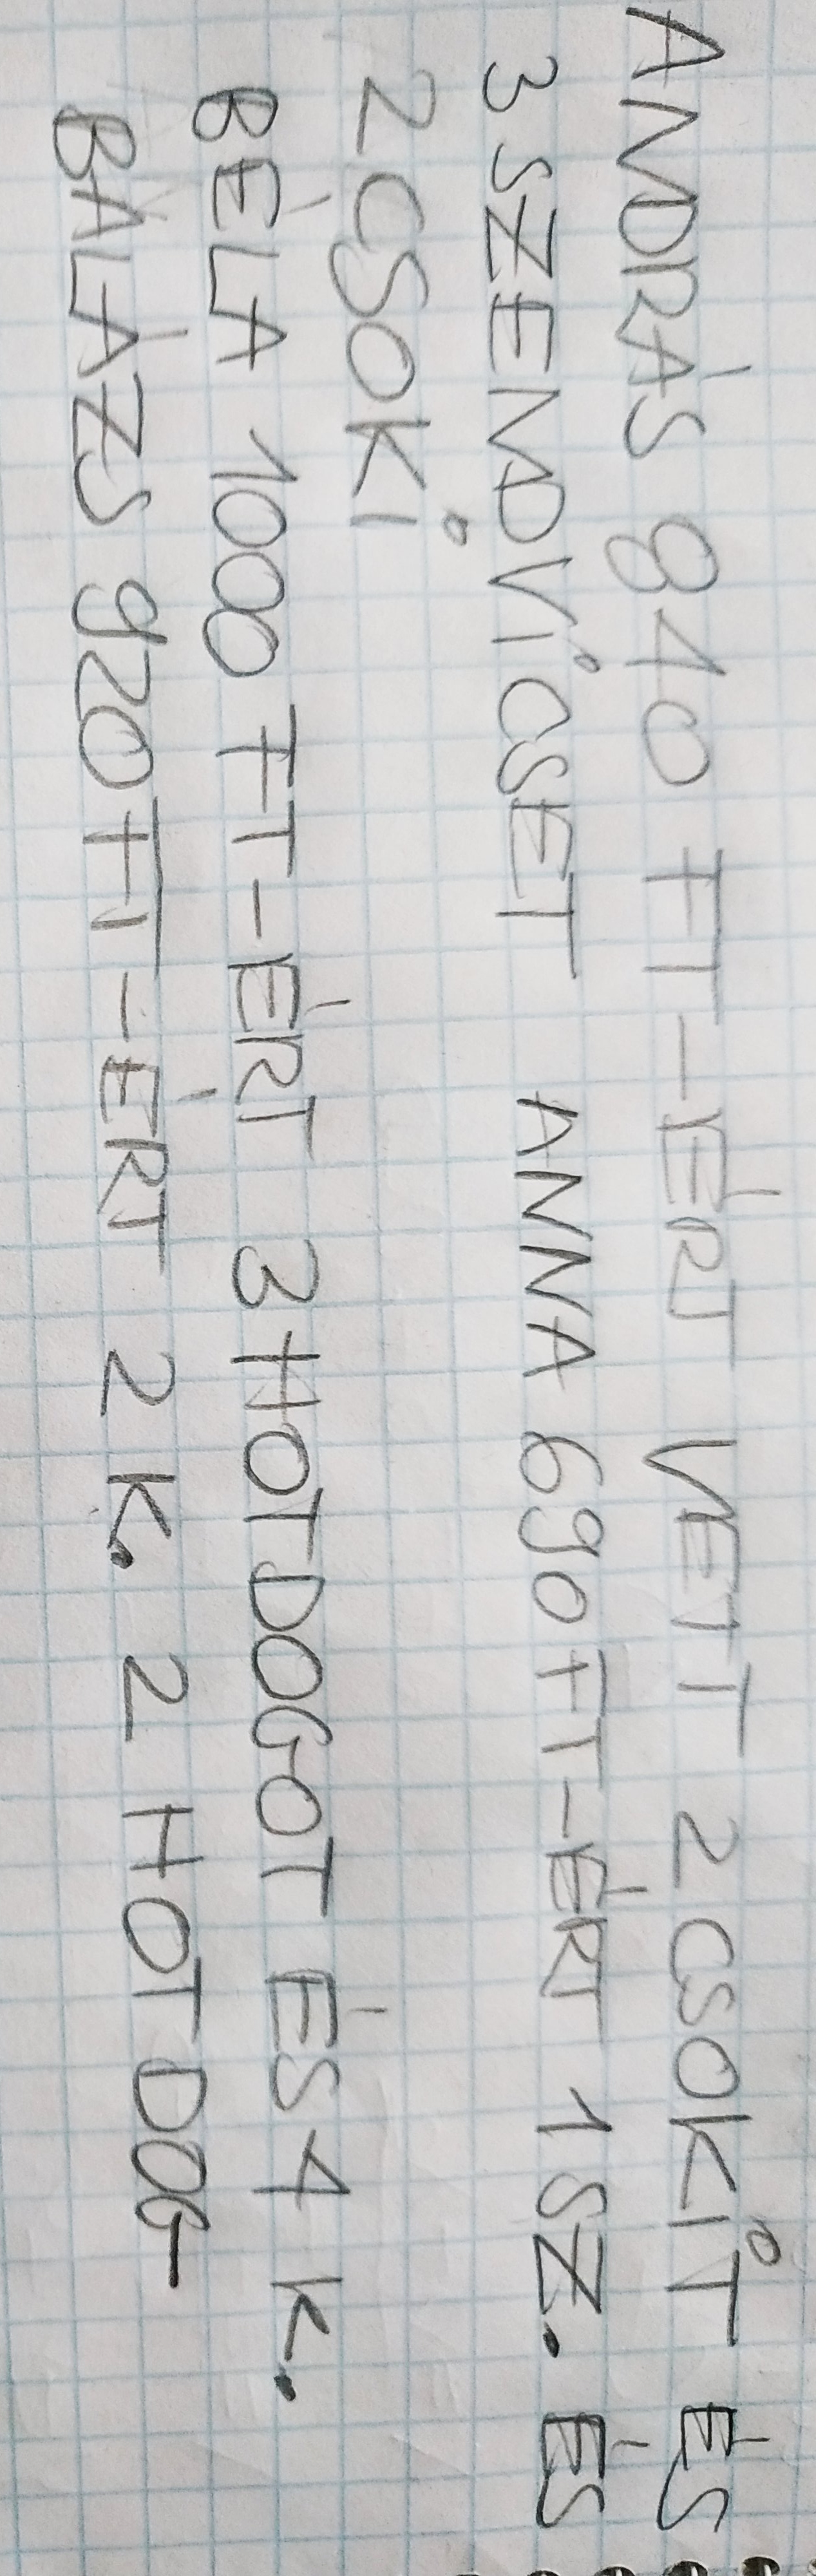 ANDRÁS 840 FT-ÉRT VETT 2 CSOKIT ÉS
3 SZENDVICSET ANNA 690 FT-ÉRT 1 SZ. ÉS
2 CSOKI
BÉLA 1000 FT-ÉRT 3 HOTDOGOT ÉS 4 K.
BALÁZS 920 FT-ÉRT 2 K. 2 HOT DOG